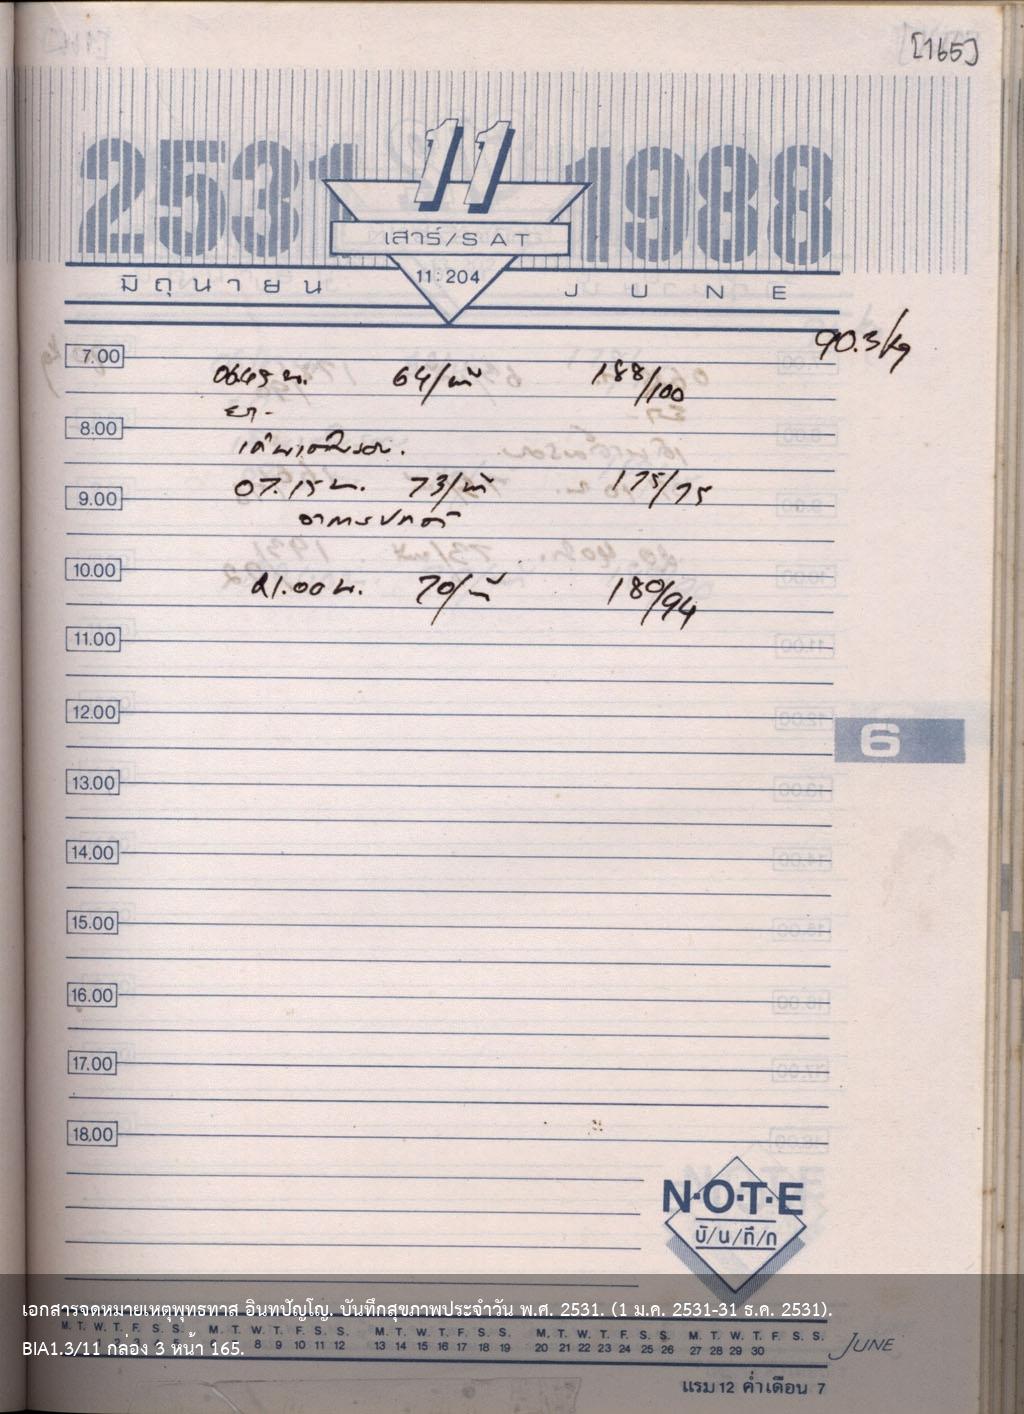 [165]
2531 11 1988
เสาร์/SAT
11:204
มิถุนายน JUNE
90.3/kg
7.00
0645 น. 64/นาที 188/100
ยา-
8.00
07.15 น. 73/นาที 175/75
9.00
อาการปกติ
10.00
21.00 น. 70/นาที 180/94
11.00
12.00
6
13.00
14.00
15.00
16.00
17.00
18.00
N·O·T·E
บั/น/ทึ/ก
เอกสารจดหมายเหตุพุทธทาส อินทปัญโญ. บันทึกสุขภาพประจำวัน พ.ศ. 2531. (1 ม.ค. 2531-31 ธ.ค. 2531).
M. T. W. T. F. S. S. M. T. W. T. F. S. S. M. T. W. T. F. S. S. M. T. W. T. F. S. S. M. T. W. T. F. S. S.
8 9 10 11 12 13 14 15 16 17 18 19 20 21 22 23 24 25 26 27 28 29 30
JUNE
BIA1.3/11 กล่อง 3 หน้า 165.
แรม 12 ค่ำ เดือน 7